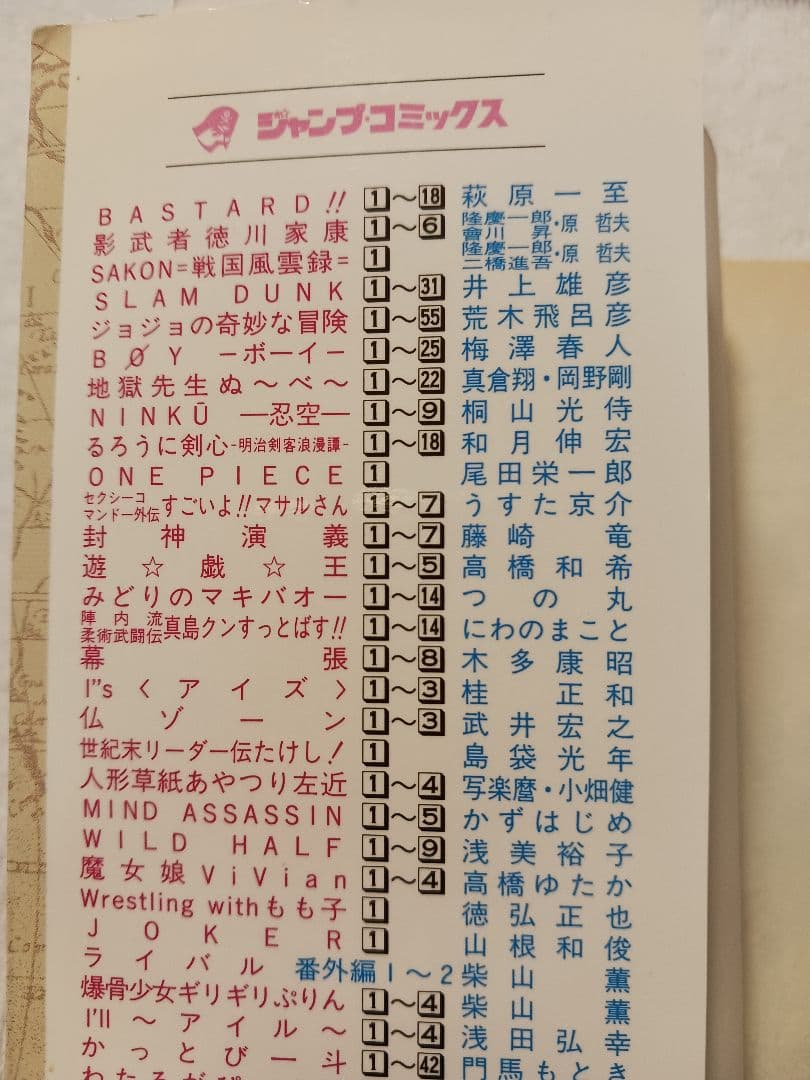 ジャンプ・コミックス
BASTARD!! 1～18 萩原一至
影武者徳川家康 1～6 隆慶一郎 會川昇・原哲夫
SAKON=戦国風雲録= 1 隆慶一郎 二橋進吾・原哲夫
SLAM DUNK 1～31 井上雄彦
ジョジョの奇妙な冒険 1～55 荒木飛呂彦
BØY －ボーイ－ 1～25 梅澤春人
地獄先生ぬ～べ～ 1～22 真倉翔・岡野剛
NINKŪ ―忍空― 1～9 桐山光侍
るろうに剣心-明治剣客浪漫譚- 1～18 和月伸宏
ONE PIECE 1 尾田栄一郎
セクシーコマンドー外伝 すごいよ!!マサルさん 1～7 うすた京介
封神演義 1～7 藤崎竜
遊☆戯☆王 1～5 高橋和希
みどりのマキバオー 1～14 つの丸
陣内流柔術武闘伝 真島クンすっとばす!! 1～14 にわのまこと
幕張 1～8 木多康昭
I"s〈アイズ〉 1～3 桂正和
仏ゾーン 1～3 武井宏之
世紀末リーダー伝たけし! 1 島袋光年
人形草紙あやつり左近 1～4 写楽麿・小畑健
MIND ASSASSIN 1～5 かずはじめ
WILD HALF 1～9 浅美裕子
魔女娘ViVian 1～4 高橋ゆたか
Wrestling withもも子 1 徳弘正也
JOKER 1 山根和俊
ライバル 番外編1～2 柴山薫
爆骨少女ギリギリぷりん 1～4 柴山薫
I'll ～アイル～ 1～4 浅田弘幸
かっとび一斗 1～42 門馬もとき